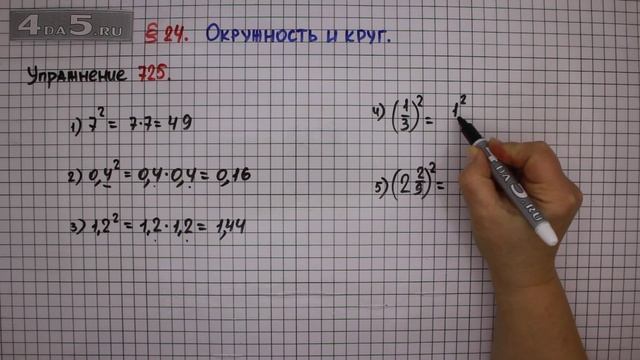 4DA5.RU
§ 24. Окружность и круг.
Упражнение 725.
1) 7² = 7·7 = 49
2) 0,4² = 0,4·0,4 = 0,16
3) 1,2² = 1,2·1,2 = 1,44
4) (1/3)² = 1²
5) (2 2/9)² =
4DA5.RU